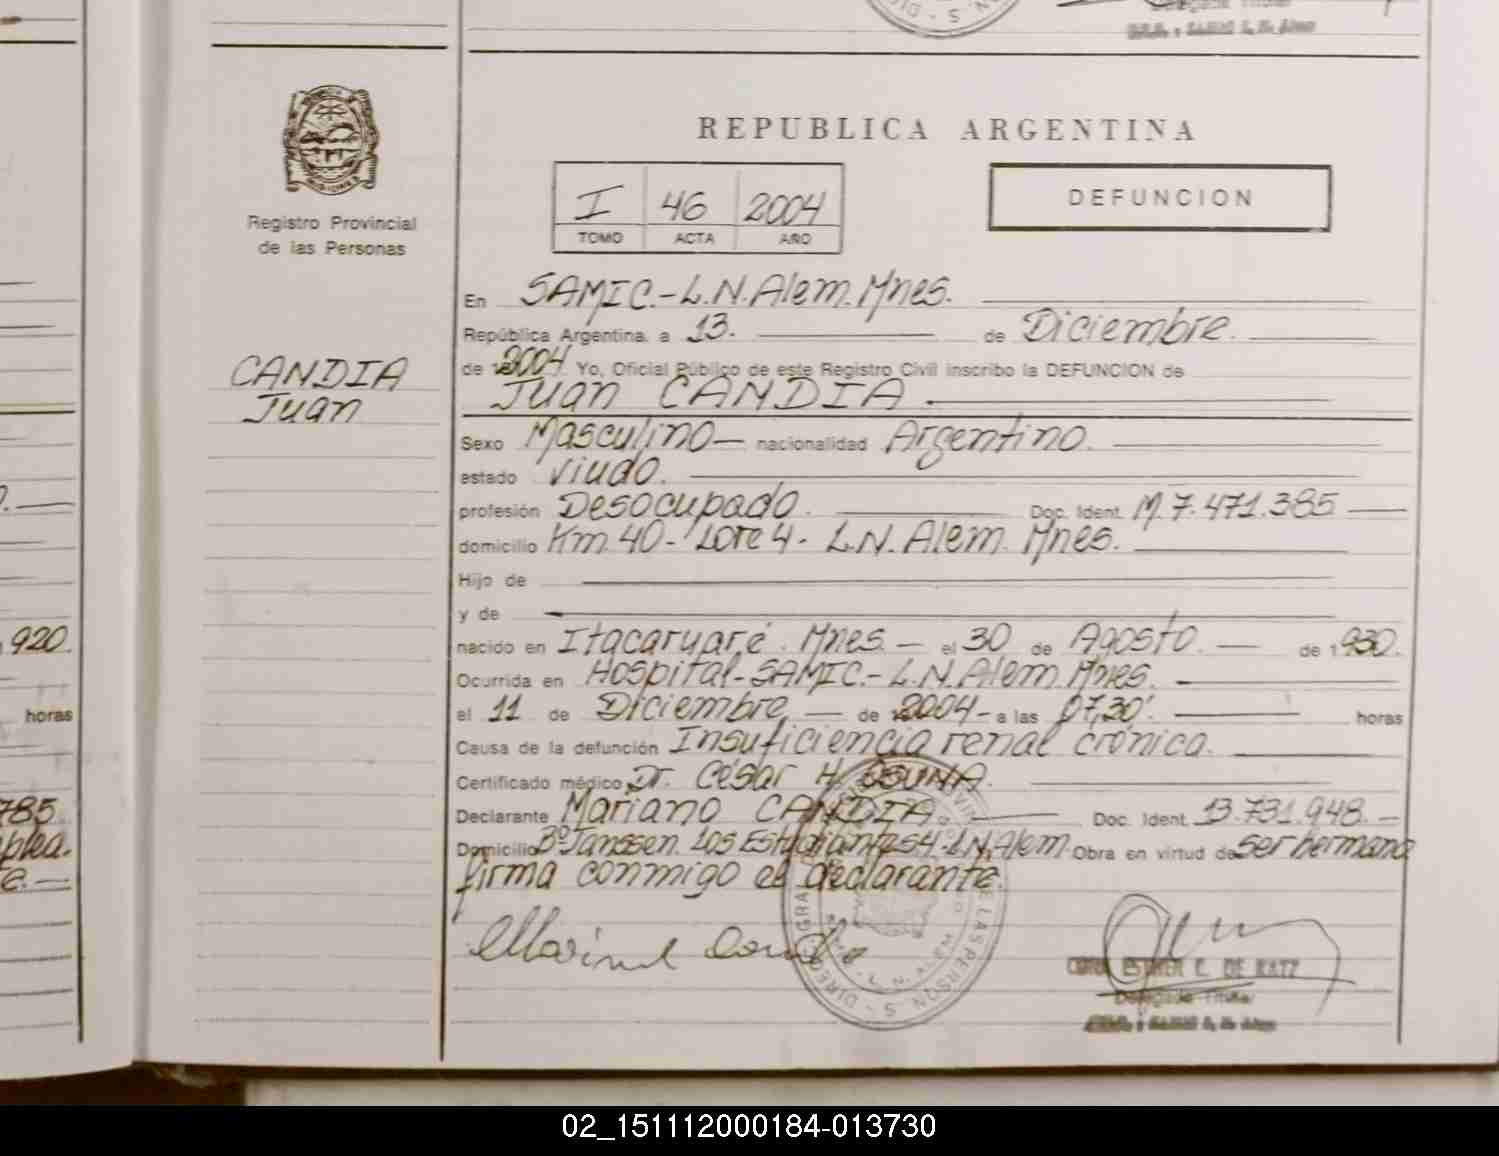 REPUBLICA ARGENTINA
I 46 2004
TOMO ACTA AÑO
DEFUNCION
Registro Provincial
de las Personas
CANDIA
Juan
En SAMIC.-L.N.Alem.Mnes.
República Argentina, a 13. de Diciembre.
de 2004 Yo, Oficial Público de este Registro Civil inscribo la DEFUNCION de
Juan CANDIA.
Sexo Masculino nacionalidad Argentino.
estado viudo.
profesión Desocupado. Doc. Ident. M.7.471.385
domicilio Km.40-Lote 4- L.N.Alem. Mnes.
Hijo de
y de
nacido en Itacaruaré. Mnes. el 30 de Agosto. de 1930.
Ocurrida en Hospital-SAMIC.-L.N.Alem.Mnes.
el 11 de Diciembre, de 2004-a las 07,30'. horas
Causa de la defunción Insuficiencia renal crónica.
Certificado médico Dr. César H. OSUNA.
Declarante Mariano CANDIA. Doc. Ident. 13.731.948.
Domicilio Bº Janssen. Los Estudiantes 4-L.N.Alem. Obra en virtud de ser hermano
firma conmigo el declarante.
ESTHER C. DE KATZ
Delegada Titular
L. N. ALEM
920.
horas
785.
02_151112000184-013730